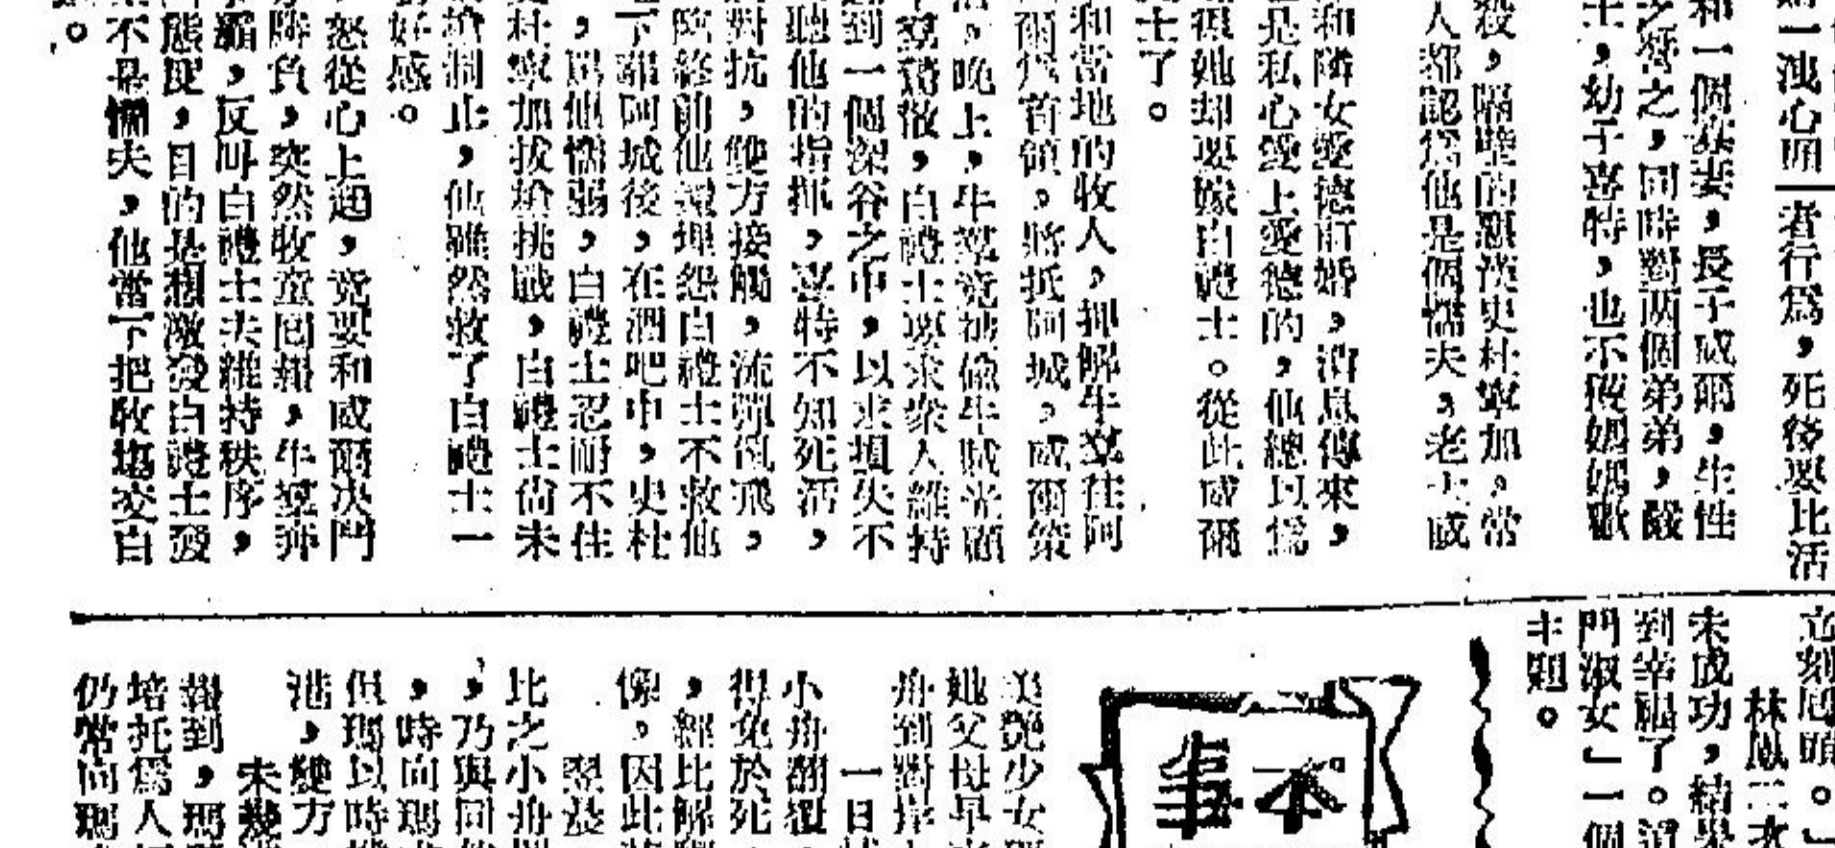 一洩心頭
者行爲，死後要比活
和一個寡妻，長子威爾，生性
之誓之，同時對两個弟弟，嚴
士，幼子喜特，也不獲媽媽歡
殺，隔壁的惡漢史杜寧加。常
人都認爲他是個懦夫，老士威
和隣女愛德訂婚，消息傳來，
是私心愛上愛德的，他總以爲
她却要嫁白禮士。從此威爾
士了。
和當地的收人，押解牛羣往阿
爾爲首領。將抵阿城。威爾策
。晚上，牛羣竟被偷牛賊光顧
羣驚散，白禮士要求衆人維持
到一個深谷之中，以求損失不
聽他的指揮，喜特不知死活，
對抗，雙方接觸，流彈亂飛，
臨終前他還埋怨白禮士不救他
下葬阿城後，在酒吧中，史杜
，罵他懦弱，白禮士忍耐不住
杜寧加拔槍挑戰，白禮士尙未
槍制止，他雖然救了白禮士一
好感。
怒從心上起，竟要和威爾决鬥
勝負，突然牧童囘報，牛羣奔
霸，反叫白禮士去維持秩序，
態度，目的是想激發白禮士發
不是懦夫，他當下把牧塲交白
。
立刻囘頭。」
林鳳二次
未成功，結果
到幸福了。這
門淑女」一個
主題。
本事
美艷少女
她父母早
舟到對岸
一日
小舟翻覆
得免於死
，經比解
像。因此
翌晨
比之小舟
，乃與同
，時向瑪
但瑪以時
港，雙方
未幾
報到，瑪
培托爲人
仍常向瑪